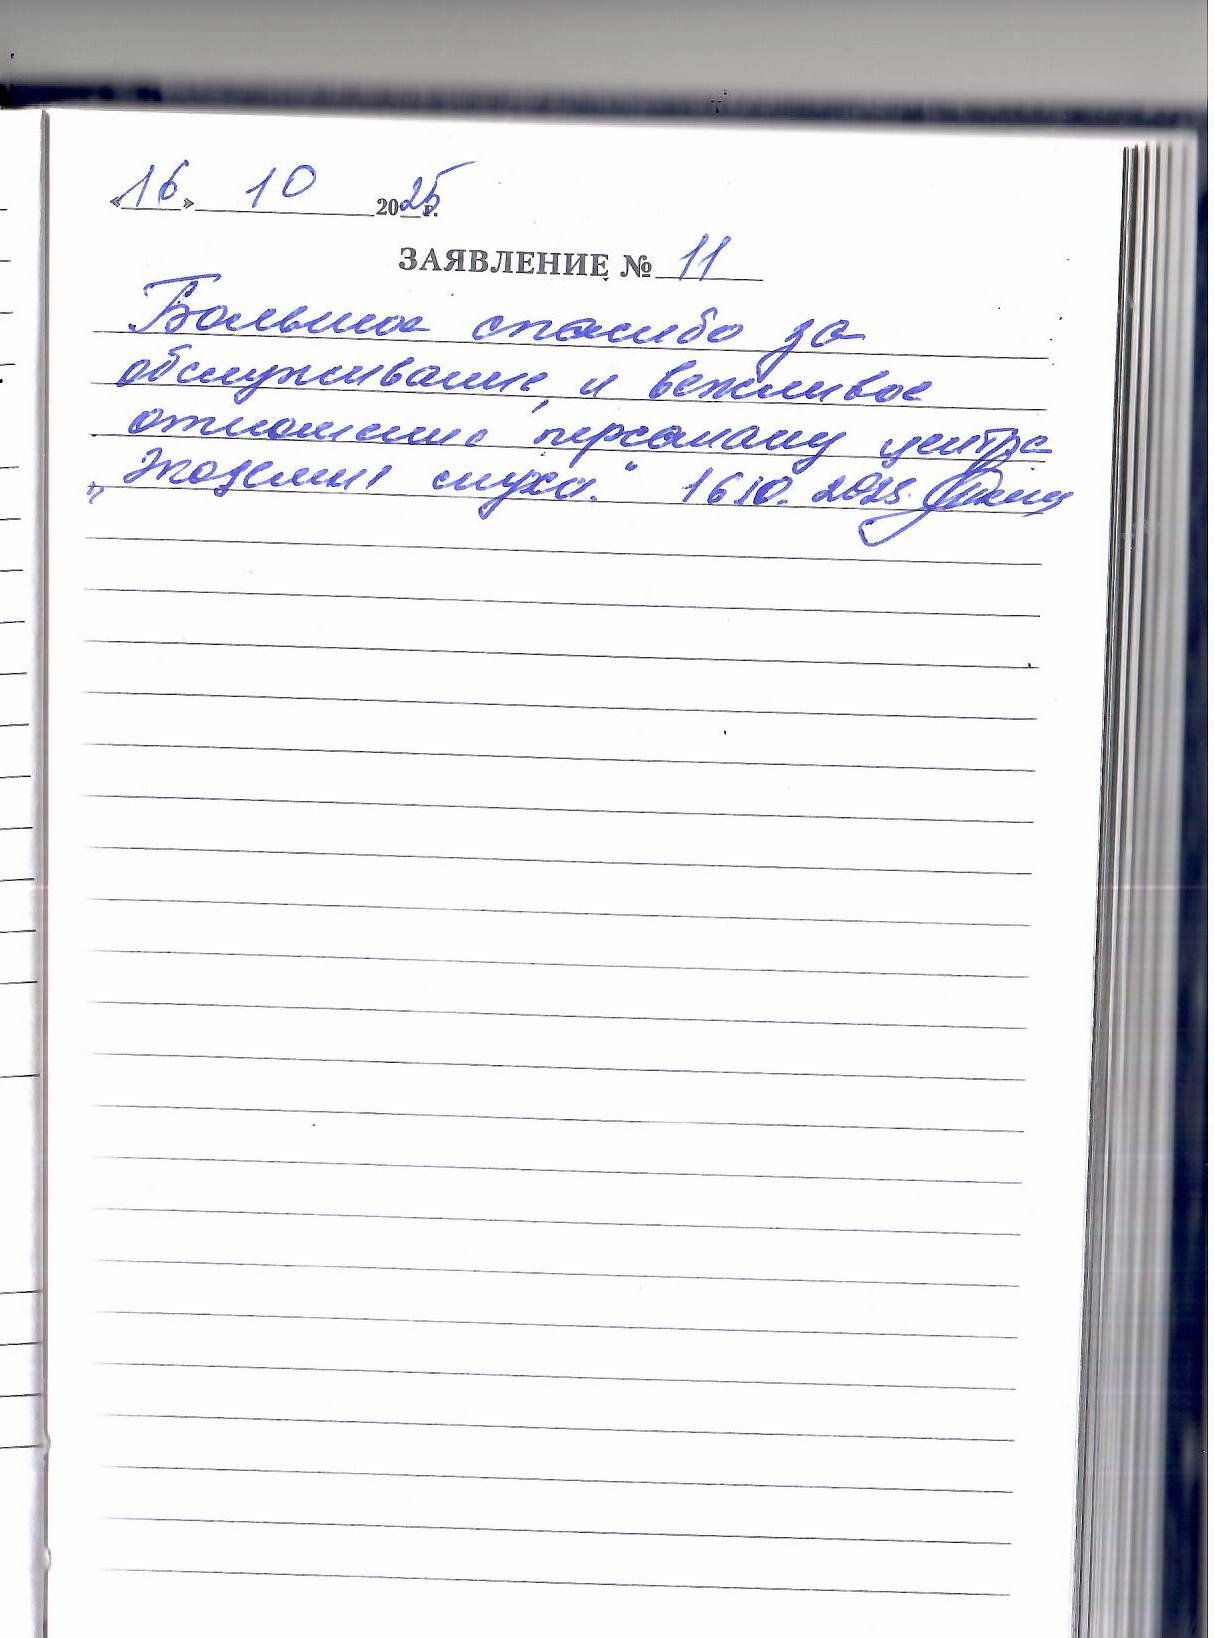 «16» 10 2025 г.
ЗАЯВЛЕНИЕ № 11
Большое спасибо за
обслуживание, и вежливое
отношение персоналу центра
„ слуха." 16.10.2025.